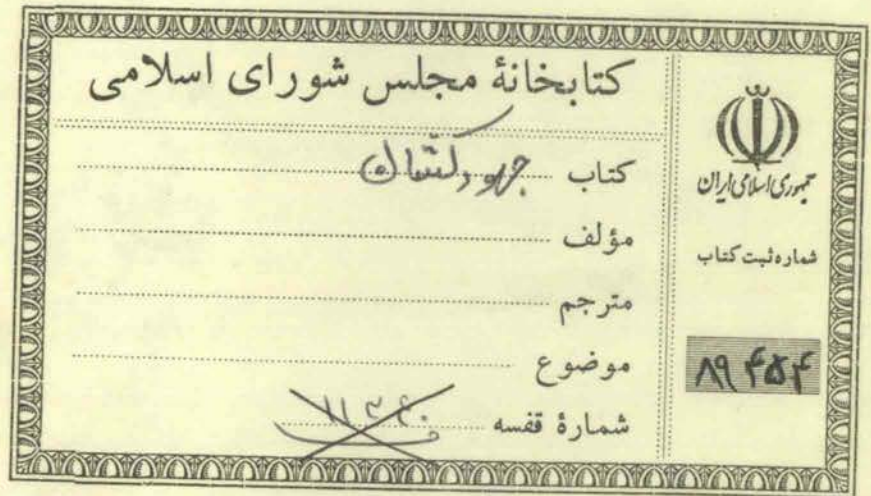 کتابخانهٔ مجلس شورای اسلامی
کتاب
مؤلف
مترجم
موضوع
شمارهٔ قفسه ۱۱۳۴۰
جمهوری اسلامی ایران
شماره ثبت کتاب
۸۹۴۵۴